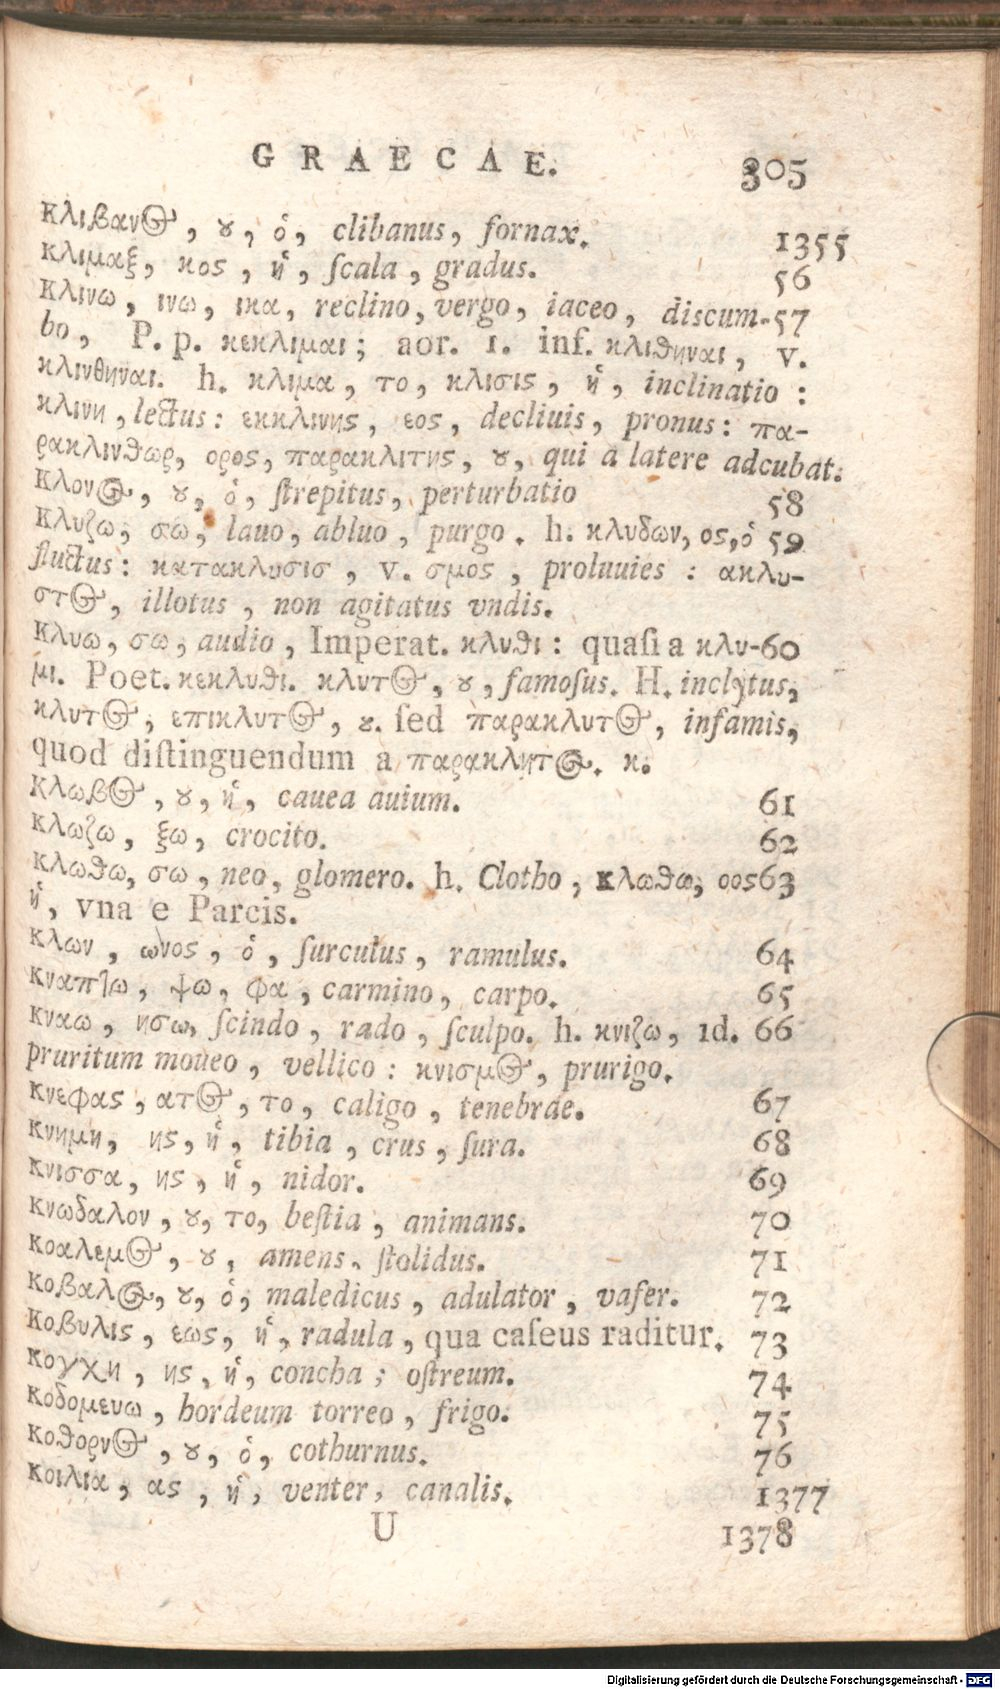 GRAECAE. 305
Κλιβανος, ȣ, ὁ, clibanus, fornax. 1355
Κλιμαξ, κος, ἡ, ſcala, gradus. 56
Κλινω, ινω, ικα, reclino, vergo, iaceo, discum- 57
bo, P. p. κεκλιμαι; aor. 1. inf. κλιθηναι, v.
κλινθηναι. h. κλιμα, το, κλισις, ἡ, inclinatio:
κλινη, lectus: εκκλινης, εος, decliuis, pronus: πα-
ρακλινθωρ, ορος, παρακλιτης, ȣ, qui a latere adcubat.
Κλονος, ȣ, ὁ, ſtrepitus, perturbatio 58
Κλυζω, σω, lauo, abluo, purgo. h. κλυδων, ος, ὁ 59
fluctus: κατακλυσισ, v. σμος, proluuies: ακλυ-
στος, illotus, non agitatus vndis.
Κλυω, σω, audio, Imperat. κλυθι: quaſi a κλυ- 60
μι. Poet. κεκλυθι. κλυτος, ȣ, famoſus. H. inclytus,
κλυτος, επικλυτος, ȣ. ſed παρακλυτος, infamis,
quod diſtinguendum a παρακλητος. κ.
Κλωβος, ȣ, ἡ, cauea auium. 61
Κλωζω, ξω, crocito. 62
Κλωθω, σω, neo, glomero. h. Clotho, κλωθω, οος 63
ἡ, vna e Parcis.
Κλων, ωνος, ὁ, ſurculus, ramulus. 64
Κναπτω, ψω, φα, carmino, carpo. 65
Κναω, ησω, ſcindo, rado, ſculpo. h. κνιζω, id. 66
pruritum moueo, vellico: κνισμος, prurigo.
Κνεφας, ατος, το, caligo, tenebrae. 67
Κνημη, ης, ἡ, tibia, crus, ſura. 68
Κνισσα, ης, ἡ, nidor. 69
Κνωδαλον, ȣ, το, beſtia, animans. 70
Κοαλεμος, ȣ, amens, ſtolidus. 71
Κοβαλος, ȣ, ὁ, maledicus, adulator, vafer. 72
Κοβυλις, εως, ἡ, radula, qua caſeus raditur. 73
Κογχη, ης, ἡ, concha; oſtreum. 74
Κοδομευω, hordeum torreo, frigo. 75
Κοθορνος, ȣ, ὁ, cothurnus. 76
Κοιλια, ας, ἡ, venter, canalis. 1377
U 1378
Digitalisierung gefördert durch die Deutsche Forschungsgemeinschaft - DFG